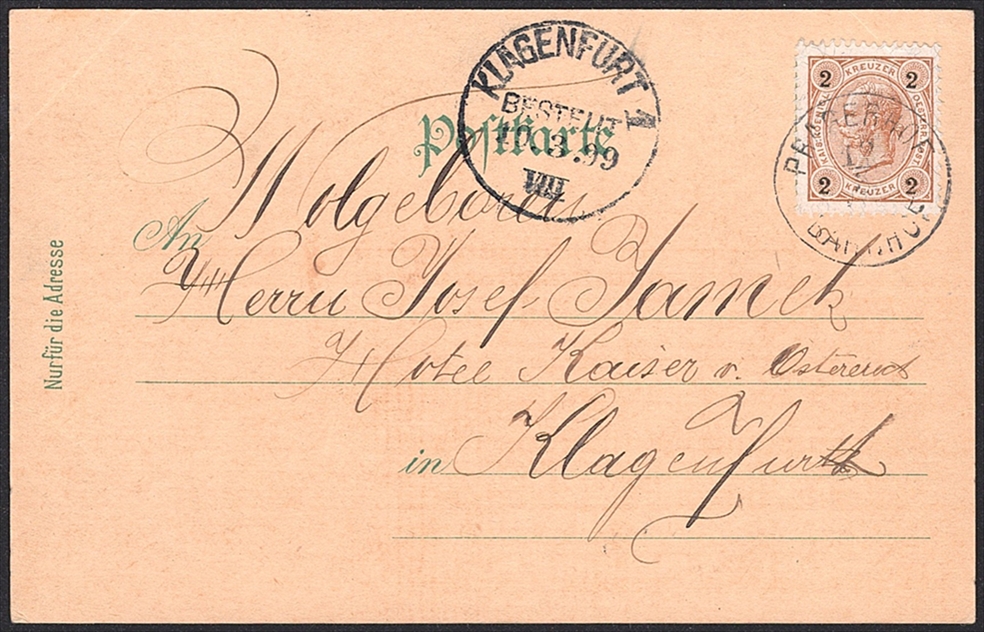 KLAGENFURT 1
BESTELLT
10.3.99
VIII
2 KREUZER 2
2 KREUZER 2
PRAGERHOF
BAHNHOF
Postkarte
Wolgeboren
An
Herrn Josef Jamek
Hotel Kaiser v. Östereich
in Klagenfurth
Nur für die Adresse